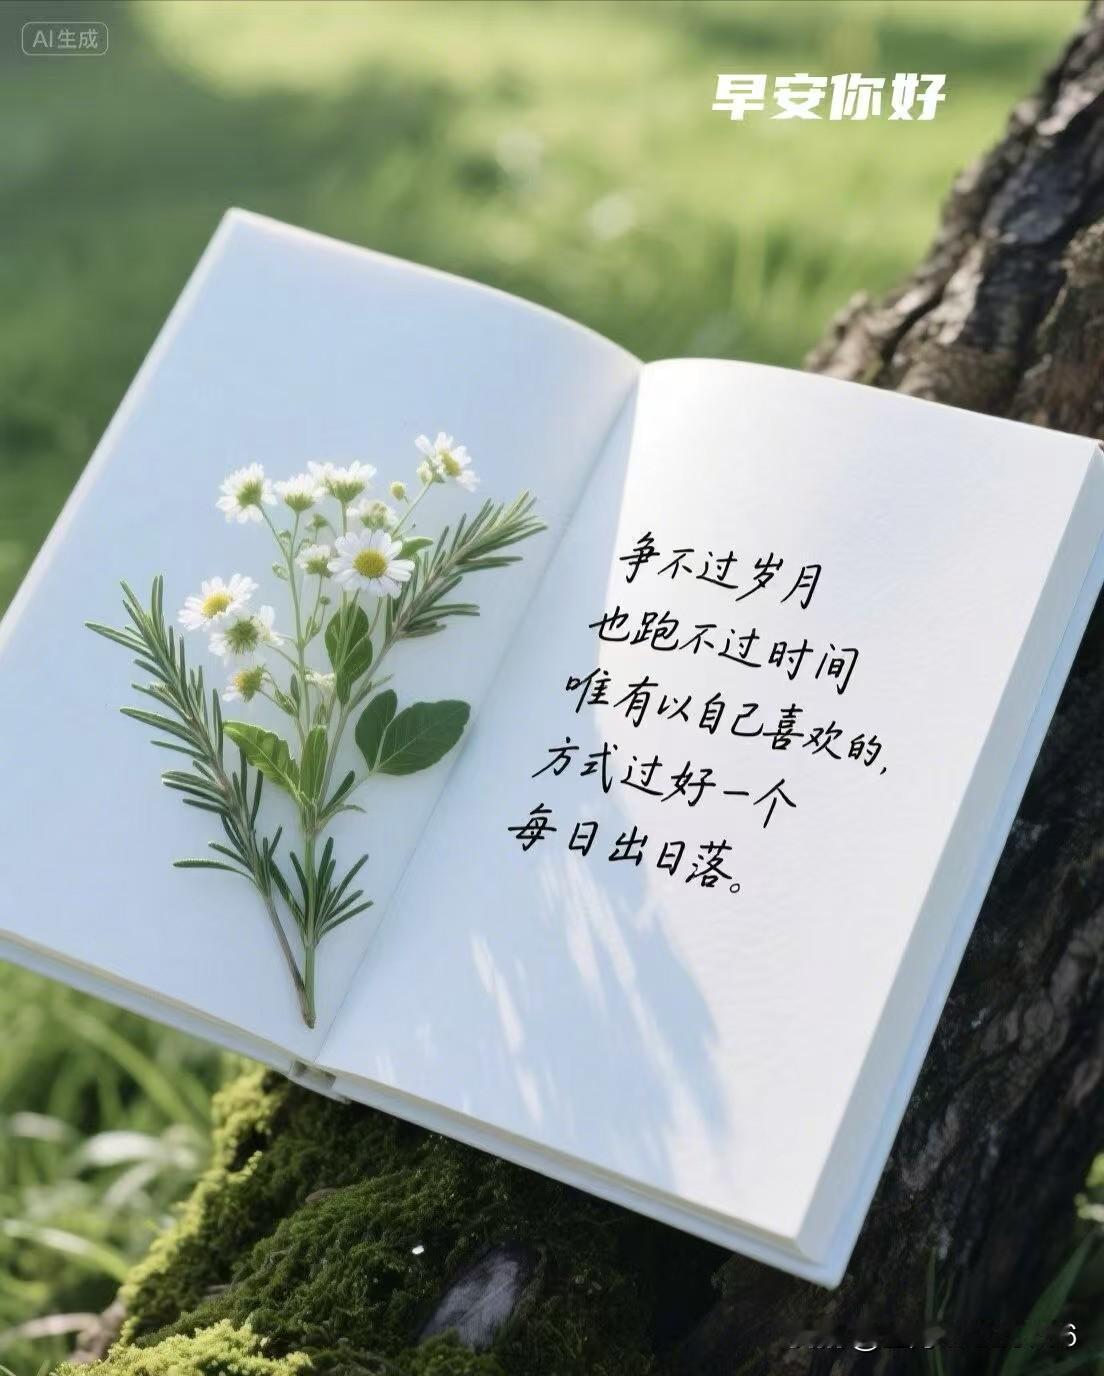 AI生成
早安你好
争不过岁月
也跑不过时间
唯有以自己喜欢的,
方式过好一个
每日出日落。